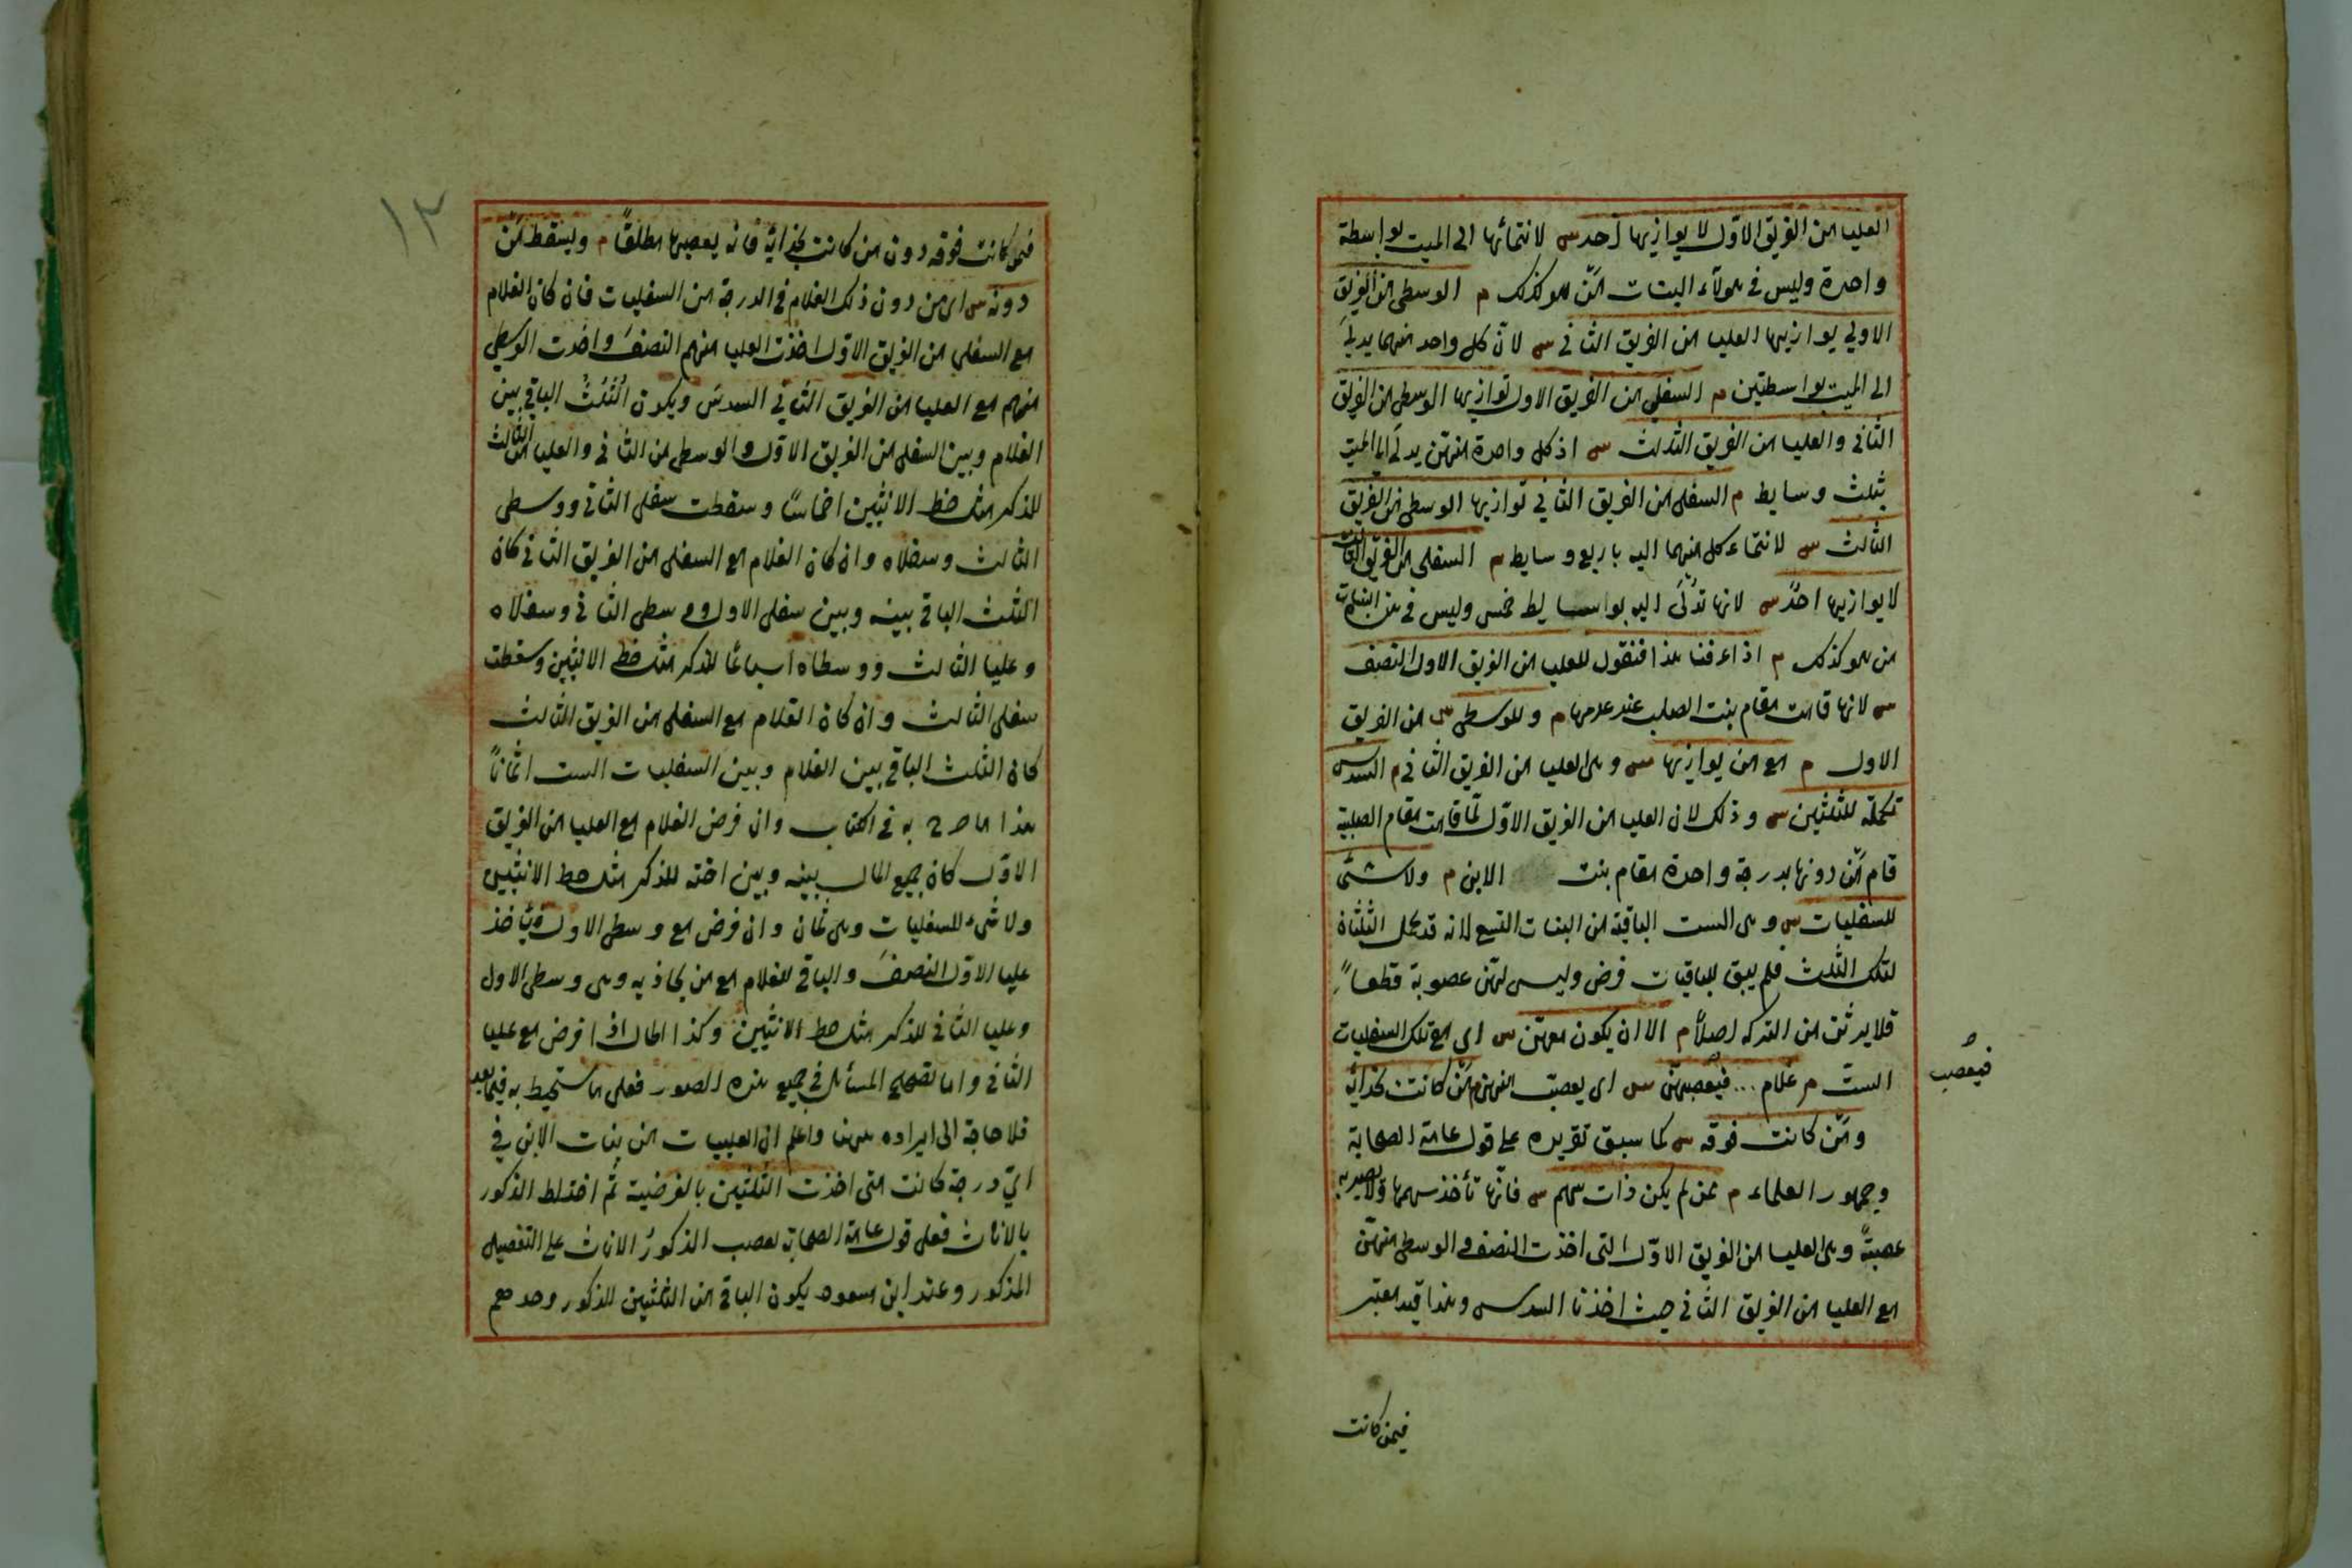 العليا من الفريق الاوّل لا يوازيها احد س لانتمائها الى الميت بواسطة
واحدة وليس فى هؤلاء البنات مَن هو كذلك م الوسطى من الفريق
الاولي يوازيها العليا من الفريق الثانى س لانّ كل واحد منهما يدلى
الى الميت بواسطتين م السفلي من الفريق الاول توازيها الوسطى من الفريق
الثانى والعليا من الفريق الثالث س اذ كل واحدة منهن يدلى الى الميت
بثلث وسايط م السفلى من الفريق الثاني توازيها الوسطى من الفريق
الثالث س لانتماء كل منهما اليه باربع وسايط م السفلى من الفريق الثالث
لا يوازيها احدٌ س لانها تدلى اليه بوسايط خمس وليس فى هذه البنات
من هو كذلك م اذا عرفنا هذا فنقول للعليا من الفريق الاول النصف
س لانها قامت مقام بنت الصلب عند عدمها م وللوسطى س من الفريق
الاول م مع من يوازيها س وهى العليا من الفريق الثانى م السدس
تكملة للثلثين س وذلك لان العليا من الفريق الاوّل لمّا قامت مقام الصلبية
قام مَن دونها بدرجة واحدة مقام بنت الابن م ولا شئ
للسفليات س وهى الست الباقية من البنات التسع لانه قد كمل الثلثان
لتلك الثلث فلم يبق للباقيات فرض وليس لهنّ عصوبة قطعاً
فلا يرثن من التركه اصلاً م الا ان يكون معهنّ س اى مع تلك السفليات
الستّ م غلام ... فيعصبهنّ س اى يعصب الغلام م مَن كانت بحذائه
فيعصب
ومَن كانت فوقه س كما سبق تقريره على قول عامة الصحابة
وجمهور العلماء م ممن لم يكن ذات سهم س فانّها تأخذ سهمها ولا تصير به
عصبةً وهى العليا من الفريق الاوّل التى اخذت النصف والوسطى منهنّ
مع العليا من الفريق الثانى حيث اخذتا السدس وهذا قيد معتبر
فيمن كانت
١٢
فيمن كانت فوقه دون من كانت بحذائه فانه يعصبها مطلقاً م ويسقط مَن
دونه س اى من دون ذلك الغلام فى الدرجة من السفليات فان كان الغلام
مع السفلي من الفريق الاوّل اخذت العليا منهم النصفَ واخذت الوسطى
منهم مع العليا من الفريق الثانى السدسَ ويكون الثُلُثُ الباقى بين
الغلام وبين السفلى من الفريق الاوّل والوسطى من الثانى والعليا من الثالث
للذكر مثل حظ الانثيين اخماساً وسقطت سفلى الثانى ووسطى
الثالث وسفلاه وان كان الغلام مع السفلى من الفريق الثانى كان
الثلث الباقى بينه وبين سفلى الاول ووسطى الثانى وسفلاه
وعليا الثالث ووسطاه اسباعًا للذكر مثل حظ الانثيين وسقطت
سفلى الثالث وان كان الغلام مع السفلى من الفريق الثالث
كان الثلث الباقى بين الغلام وبين السفليات الست اثماناً
هذا ما صرح به فى الكتاب وان فرض الغلام مع العليا من الفريق
الاوّل كان جميع المال بينه وبين اخته للذكر مثل حظ الانثيين
ولا شىء للسفليات وهى ثمان وان فرض مع وسطى الاول فيأخذ
عليا الاوّل النصفَ والباقى للغلام مع من يحاذيه وهى وسطى الاول
وعليا الثانى للذكر مثل حظ الانثيين وكذا الحال اذا فرض مع عليا
الثانى واما تصحيح المسائل فى جميع هذه الصور فعلى ما ستحيط به فيما بعد
فلا حاجة الى ايراده ههنا واعلم ان العليات من بنات الابن فى
ايّ درجة كانت متى اخذت الثلثين بالفرضية ثم اختلط الذكور
بالاناث فعلى قول عامة الصحابة يعصب الذكورُ الاناث على التفصيل
المذكور وعند ابن مسعود يكون الباقى من الثلثين للذكور وحدهم